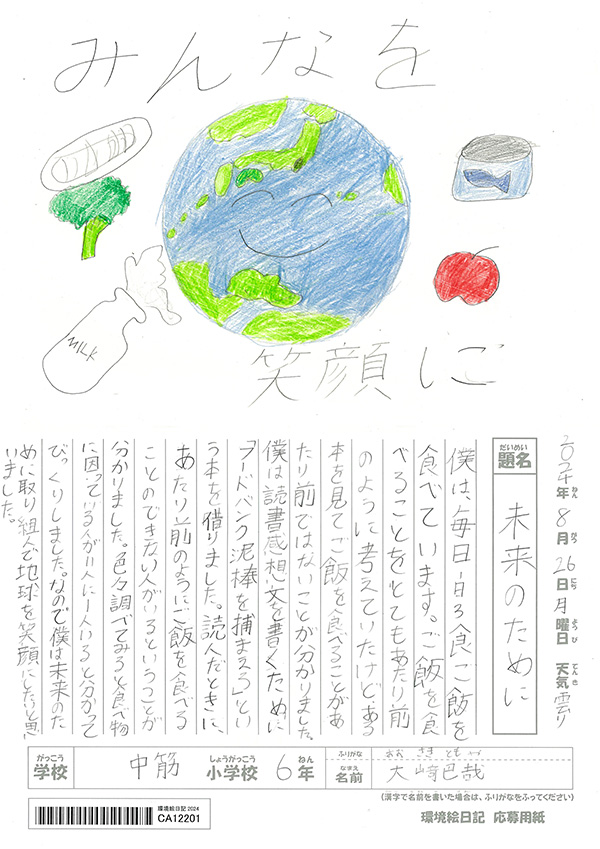 みんなを
MILK
笑顔に
2024年8月26日月曜日 天気 曇り
ねん がつ にち ようび てんき
だいめい
題名 未来のために
僕は、毎日一日3食ご飯を
食べています。ご飯を食
べることをとてもあたり前
のように考えていたけどある
本を見てご飯を食べることがあ
たり前ではないことが分かりました。
僕は読書感想文を書くために
「フードバンク泥棒を捕まえろ」とい
う本を借りました。読んだときに、
あたり前のようにご飯を食べる
ことのできない人がいるということが
分かりました。色々調べてみると食べ物
に困っている人が11人に1人いると分かって
びっくりしました。なので僕は未来のた
めに取り組んで地球を笑顔にしたいと思
いました。
がっこう しょうがっこう ねん
学校 中筋 小学校 6年
ふりがな おおさきともや
なまえ
名前 大﨑巴哉
(漢字で名前を書いた場合は、ふりがなをふってください)
環境絵日記 2024
CA12201
環境絵日記 応募用紙